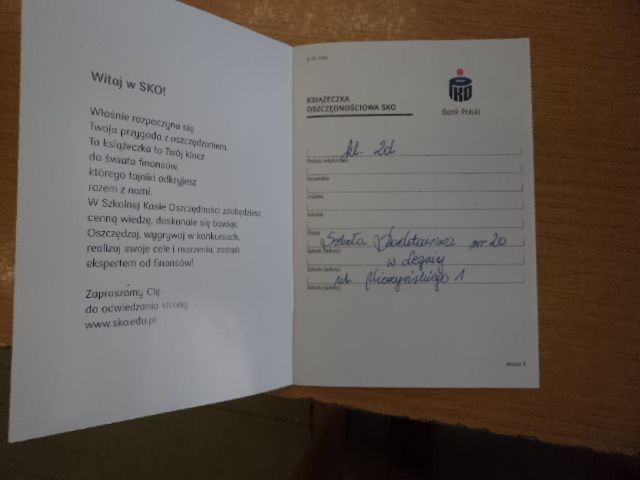 Witaj w SKO!
Właśnie rozpoczyna się
Twoja przygoda z oszczędzaniem.
Ta książeczka to Twój klucz
do świata finansów,
którego tajniki odkryjesz
razem z nami.
W Szkolnej Kasie Oszczędności zdobędziesz
cenną wiedzę, doskonale się bawiąc.
Oszczędzaj, wygrywaj w konkursach,
realizuj swoje cele i marzenia, zostań
ekspertem od finansów!
Zapraszamy Cię
do odwiedzania strony
www.sko.edu.pl
Bank Polski
KSIĄŻECZKA
OSZCZĘDNOŚCIOWA SKO
kl. 2d
Podpis właściciela
Nazwisko
Imiona
Imiona
Klasa
Szkoła Podstawowa nr 20
Szkoła (adres)
w Legnicy
Szkoła (adres)
ul. 1
Szkoła (adres)
strona 1